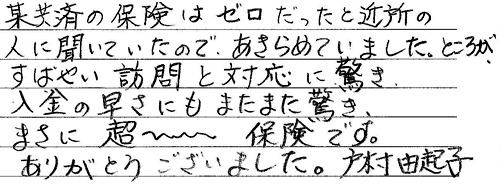 某共済の保険はゼロだったと近所の
人に聞いていたので、あきらめていました。ところが、
すばやい訪問と対応に驚き、
入金の早さにもまたまた驚き、
まさに超〜〜〜保険です。
ありがとうございました。戸村由起子